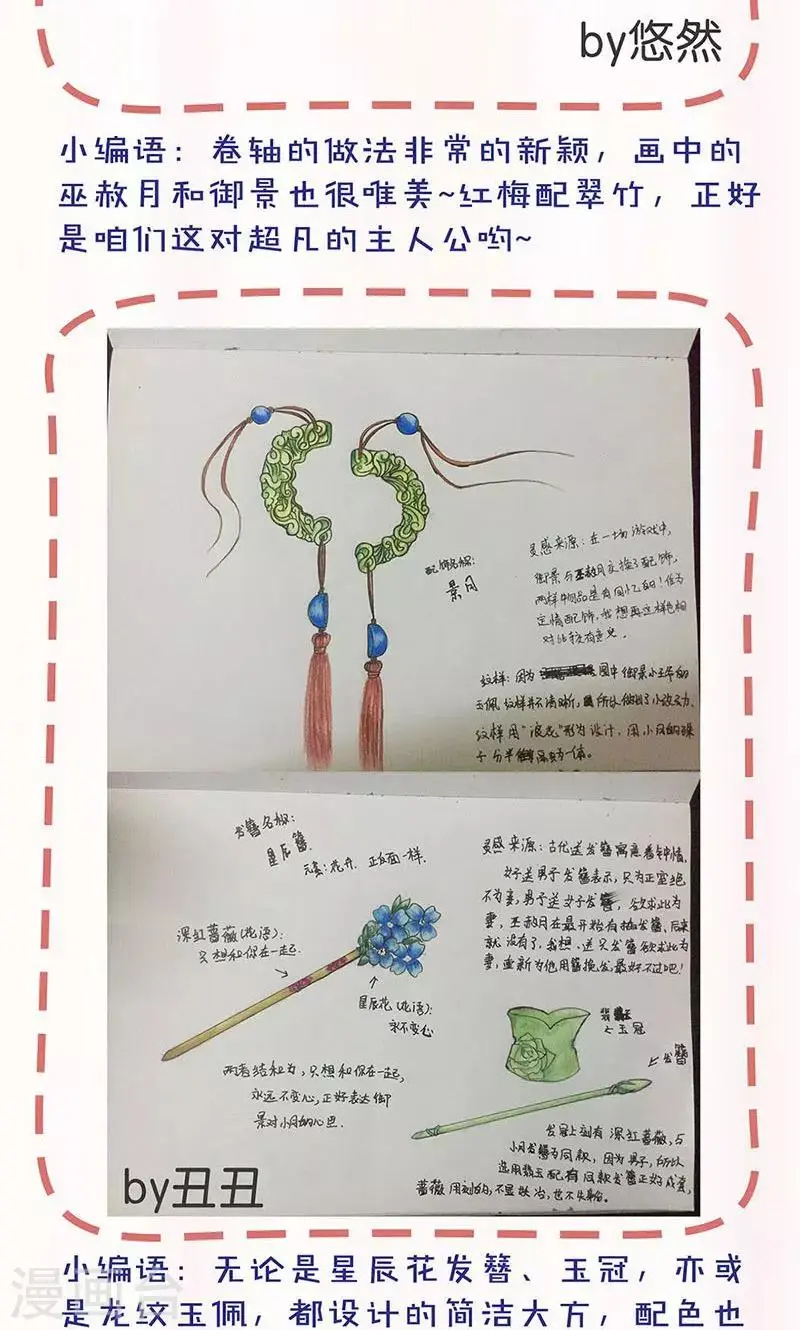 by悠然
小编语：卷轴的做法非常的新颖，画中的
巫赦月和御景也很唯美~红梅配翠竹，正好
是咱们这对超凡的主人公哟~
配饰名称：
景月
灵感来源：在一场游戏中，
御景与巫赦月交换了配饰，
两样物品是有回忆的！作为
定情配饰，我想再这样色相
对比较有意义。
纹样：因为 图中御景小王爷的
玉佩纹样并不清晰，所以做出了小改动、
纹样用“浪花”形为设计，用小月的珠
子分半 为一体。
发簪名称：
星辰簪
元素：花卉 正反面一样．
深红蔷薇（花语）：
只想和你在一起．
星辰花（花语）：
永不变心
两者结和为，只想和你在一起，
永远不变心，正好表达御
景对小月的心思．
灵感来源：古代送发簪寓意着钟情．
女子送男子发簪表示，只为正室绝
不为妾，男子送女子发簪，欲求此为
妻，巫赦月在最开始有插发簪、后来
就没有了，我想、送只发簪欲求此为
妻，重新为他用簪挽发，最好不过吧！
翡翠
玉冠
发簪
发冠上刻有深红蔷薇，与
小月发簪为同款，因为男子，所以
选用翡玉配有同款发簪正好成套，
蔷薇用刻的，不显妖冶，也不失单调。
by丑丑
小编语：无论是星辰花发簪、玉冠，亦或
是龙纹玉佩，都设计的简洁大方，配色也
漫画台